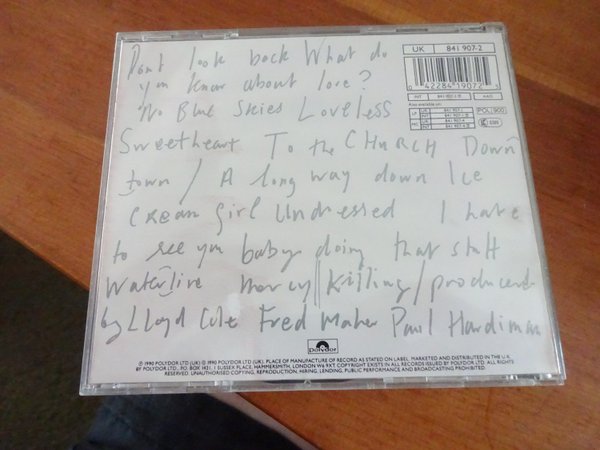 Dont look back What do
you know about love?
No Blue Skies Loveless
Sweetheart To the CHURCH Down
town / A long way down Ice
cream girl Undressed I hate
to see you baby doing that stuff
Waterline Mercy Killing / produced
by Lloyd Cole Fred Maher Paul Hardiman
UK 841 907-2
0 42284 19072
POL 900
polydor
℗ 1990 POLYDOR LTD (UK) © 1990 POLYDOR LTD (UK). PLACE OF MANUFACTURE OF RECORD AS STATED ON LABEL. MARKETED AND DISTRIBUTED IN THE U.K.
BY POLYDOR LTD., P.O. BOX 1421, 1 SUSSEX PLACE, HAMMERSMITH, LONDON W6 9XT. COPYRIGHT EXISTS IN ALL RECORDS ISSUED BY POLYDOR LTD. ALL RIGHTS
RESERVED. UNAUTHORISED COPYING, REPRODUCTION, HIRING, LENDING, PUBLIC PERFORMANCE AND BROADCASTING PROHIBITED.